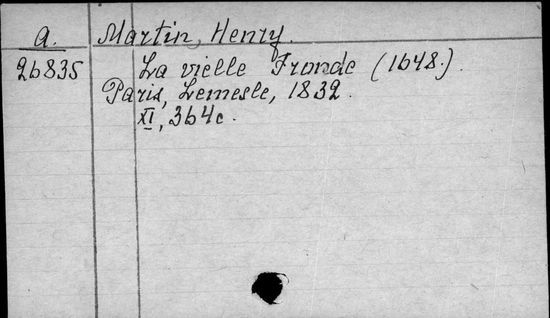 a. Martin, Henry.
26835 La vielle Fronde (1648).
Paris, Lemesle, 1832.
XI, 364c.